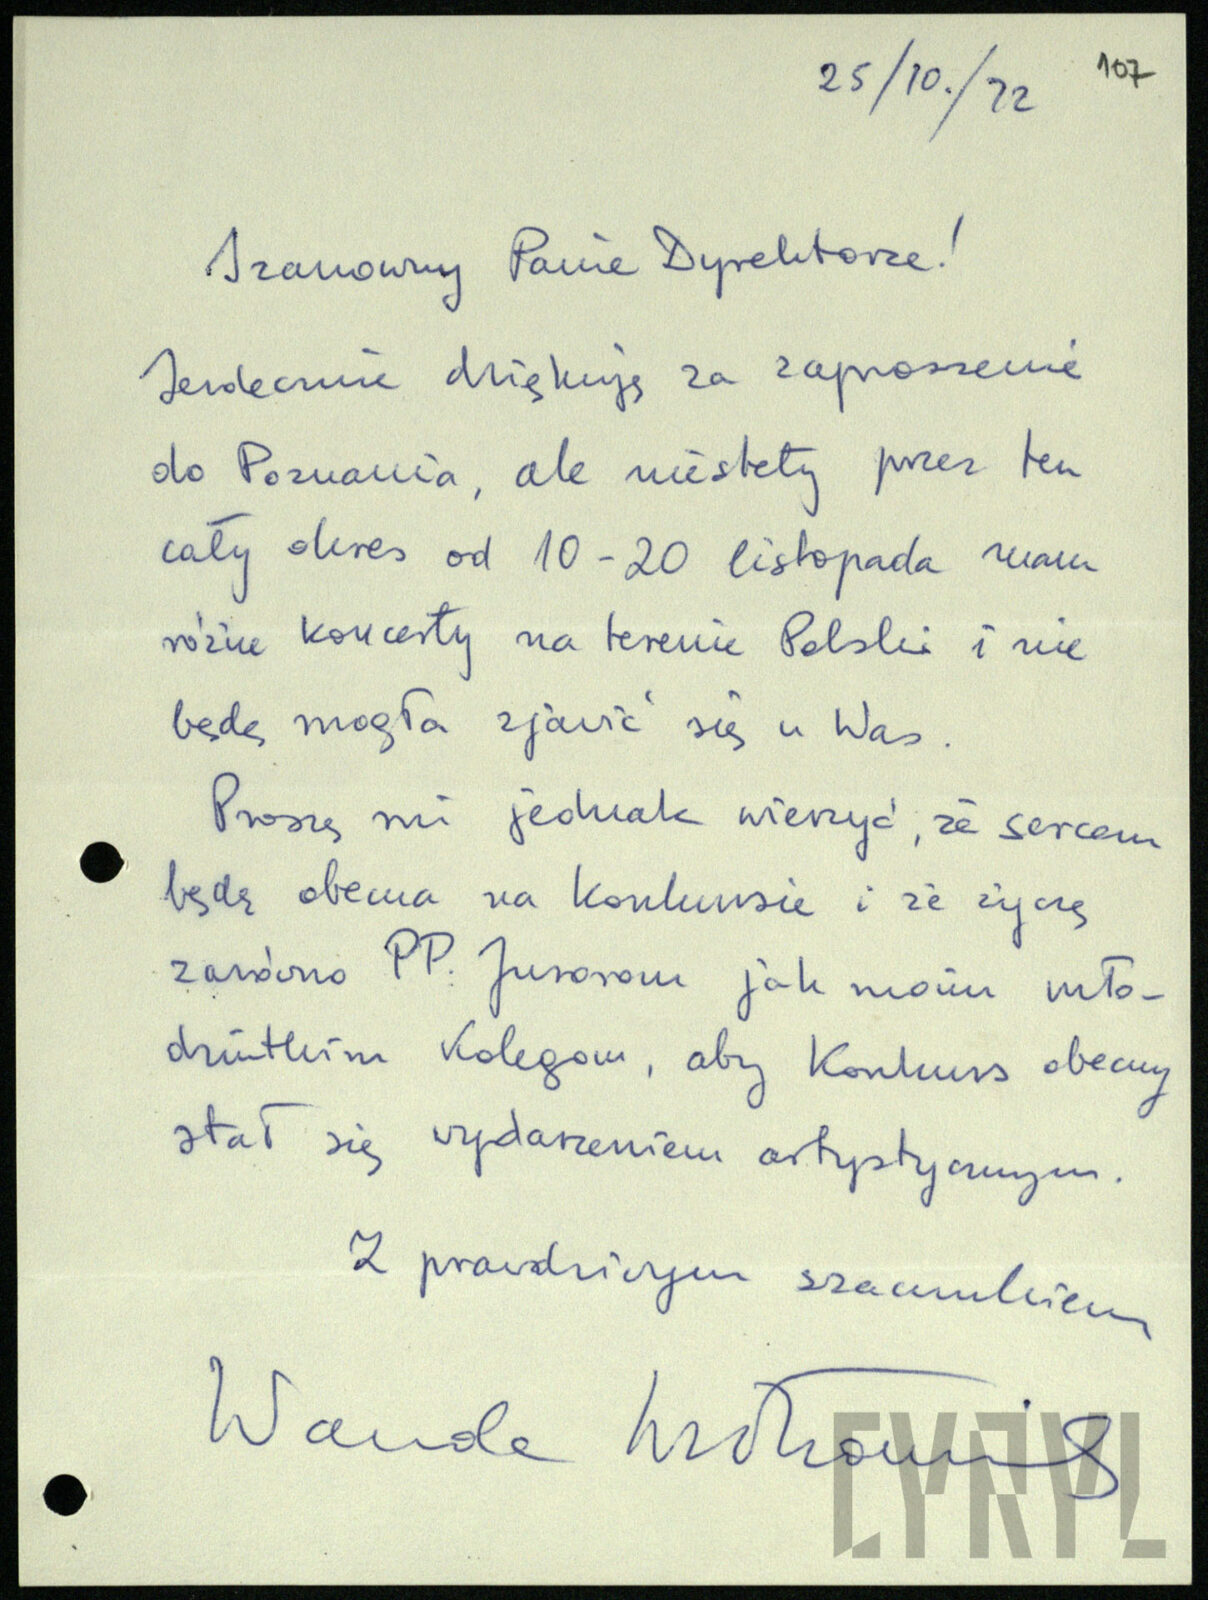 107
25/10./72
Szanowny Panie Dyrektorze!
Serdecznie dziękuję za zaproszenie
do Poznania, ale niestety przez ten
cały okres od 10-20 listopada mam
różne koncerty na terenie Polski i nie
będę mogła zjawić się u Was.
Proszę mi jednak wierzyć, że sercem
będę obecna na Konkursie i że życzę
zarówno PP. Jurorom jak moim mło-
dziutkim Kolegom, aby Konkurs obecny
stał się wydarzeniem artystycznym.
Z prawdziwym szacunkiem
Wanda Wiłkomirska
CYRYL